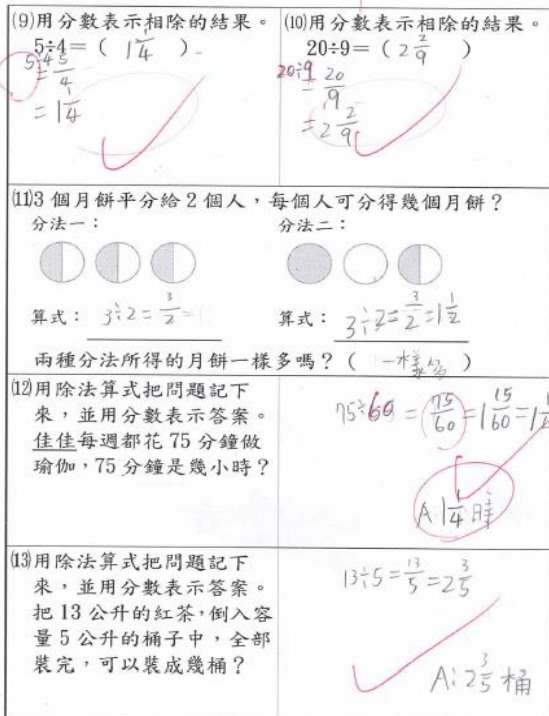 (9)用分數表示相除的結果。
5÷4=( 1 1/4 )
5÷4
=5/4
=1 1/4
(10)用分數表示相除的結果。
20÷9=( 2 2/9 )
20÷9
=20/9
=2 2/9
(11)3 個月餅平分給 2 個人，每個人可分得幾個月餅？
分法一：
分法二：
算式：3÷2=3/2
算式：3÷2=3/2=1 1/2
兩種分法所得的月餅一樣多嗎？( 一樣多 )
(12)用除法算式把問題記下
來，並用分數表示答案。
佳佳每週都花 75 分鐘做
瑜伽，75 分鐘是幾小時？
75÷60=75/60=1 15/60=
A:1 1/4時
(13)用除法算式把問題記下
來，並用分數表示答案。
把 13 公升的紅茶，倒入容
量 5 公升的桶子中，全部
裝完，可以裝成幾桶？
13÷5=13/5=2 3/5
A:2 3/5桶